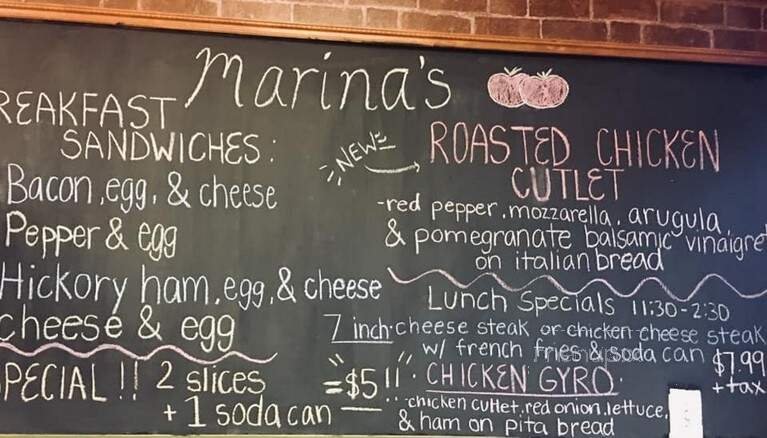 Marina's
REAKFAST
SANDWICHES:
Bacon, egg, & cheese
Pepper & egg
Hickory ham, egg, & cheese
cheese & egg
PECIAL!! 2 slices
+ 1 soda can
=$5!!
NEW
ROASTED CHICKEN
CUTLET
-red pepper, mozzarella, arugula
& pomegranate balsamic vinaigret
on italian bread
Lunch Specials 11:30-2:30
7 inch-cheese steak or chicken cheese steak
w/ french fries & soda can $7.99
+tax
CHICKEN GYRO
-chicken cutlet, red onion, lettuce,
& ham on pita bread